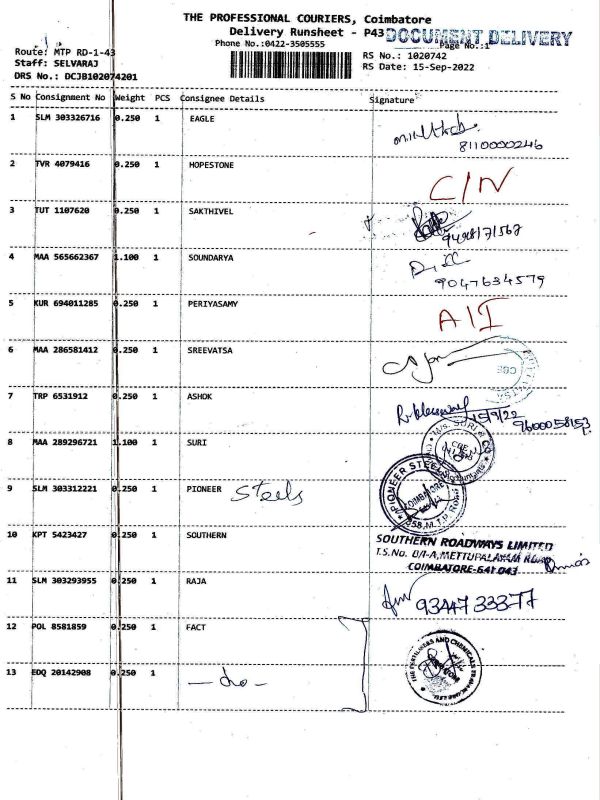 THE PROFESSIONAL COURIERS, Coimbatore
Delivery Runsheet - P43
DOCUMENT DELIVERY
Phone No.:0422-3505555
Page No.:1
Route: MTP RD-1-43
RS No.: 1020742
Staff: SELVARAJ
RS Date: 15-Sep-2022
DRS No.: DCJB102074201
S No Consignment No Weight PCS Consignee Details Signature
1 SLM 303326716 0.250 1 EAGLE
8110000246
2 TVR 4079416 0.250 1 HOPESTONE C/N
3 TUT 1107620 0.250 1 SAKTHIVEL
9498171567
4 MAA 565662367 1.100 1 SOUNDARYA
9047634579
5 KUR 694011285 0.250 1 PERIYASAMY A/I
6 MAA 286581412 0.250 1 SREEVATSA
CBE
7 TRP 6531912 0.250 1 ASHOK
15/9/22 9600058153
8 MAA 289296721 1.100 1 SURI
M/s. SURI & CO
Accountants
9 SLM 303312221 0.250 1 PIONEER Steels
PIONEER STEEL
COIMBATORE
358, M.T.P. Road
10 KPT 5423427 0.250 1 SOUTHERN
SOUTHERN ROADWAYS LIMITED
T.S.No. 8/1-A, METTUPALAYAM ROAD
COIMBATORE-641 043
11 SLM 303293955 0.250 1 RAJA
9344733377
12 POL 8581859 0.250 1 FACT
THE FERTILISERS AND CHEMICALS
13 EDQ 20142908 0.250 1 -do-